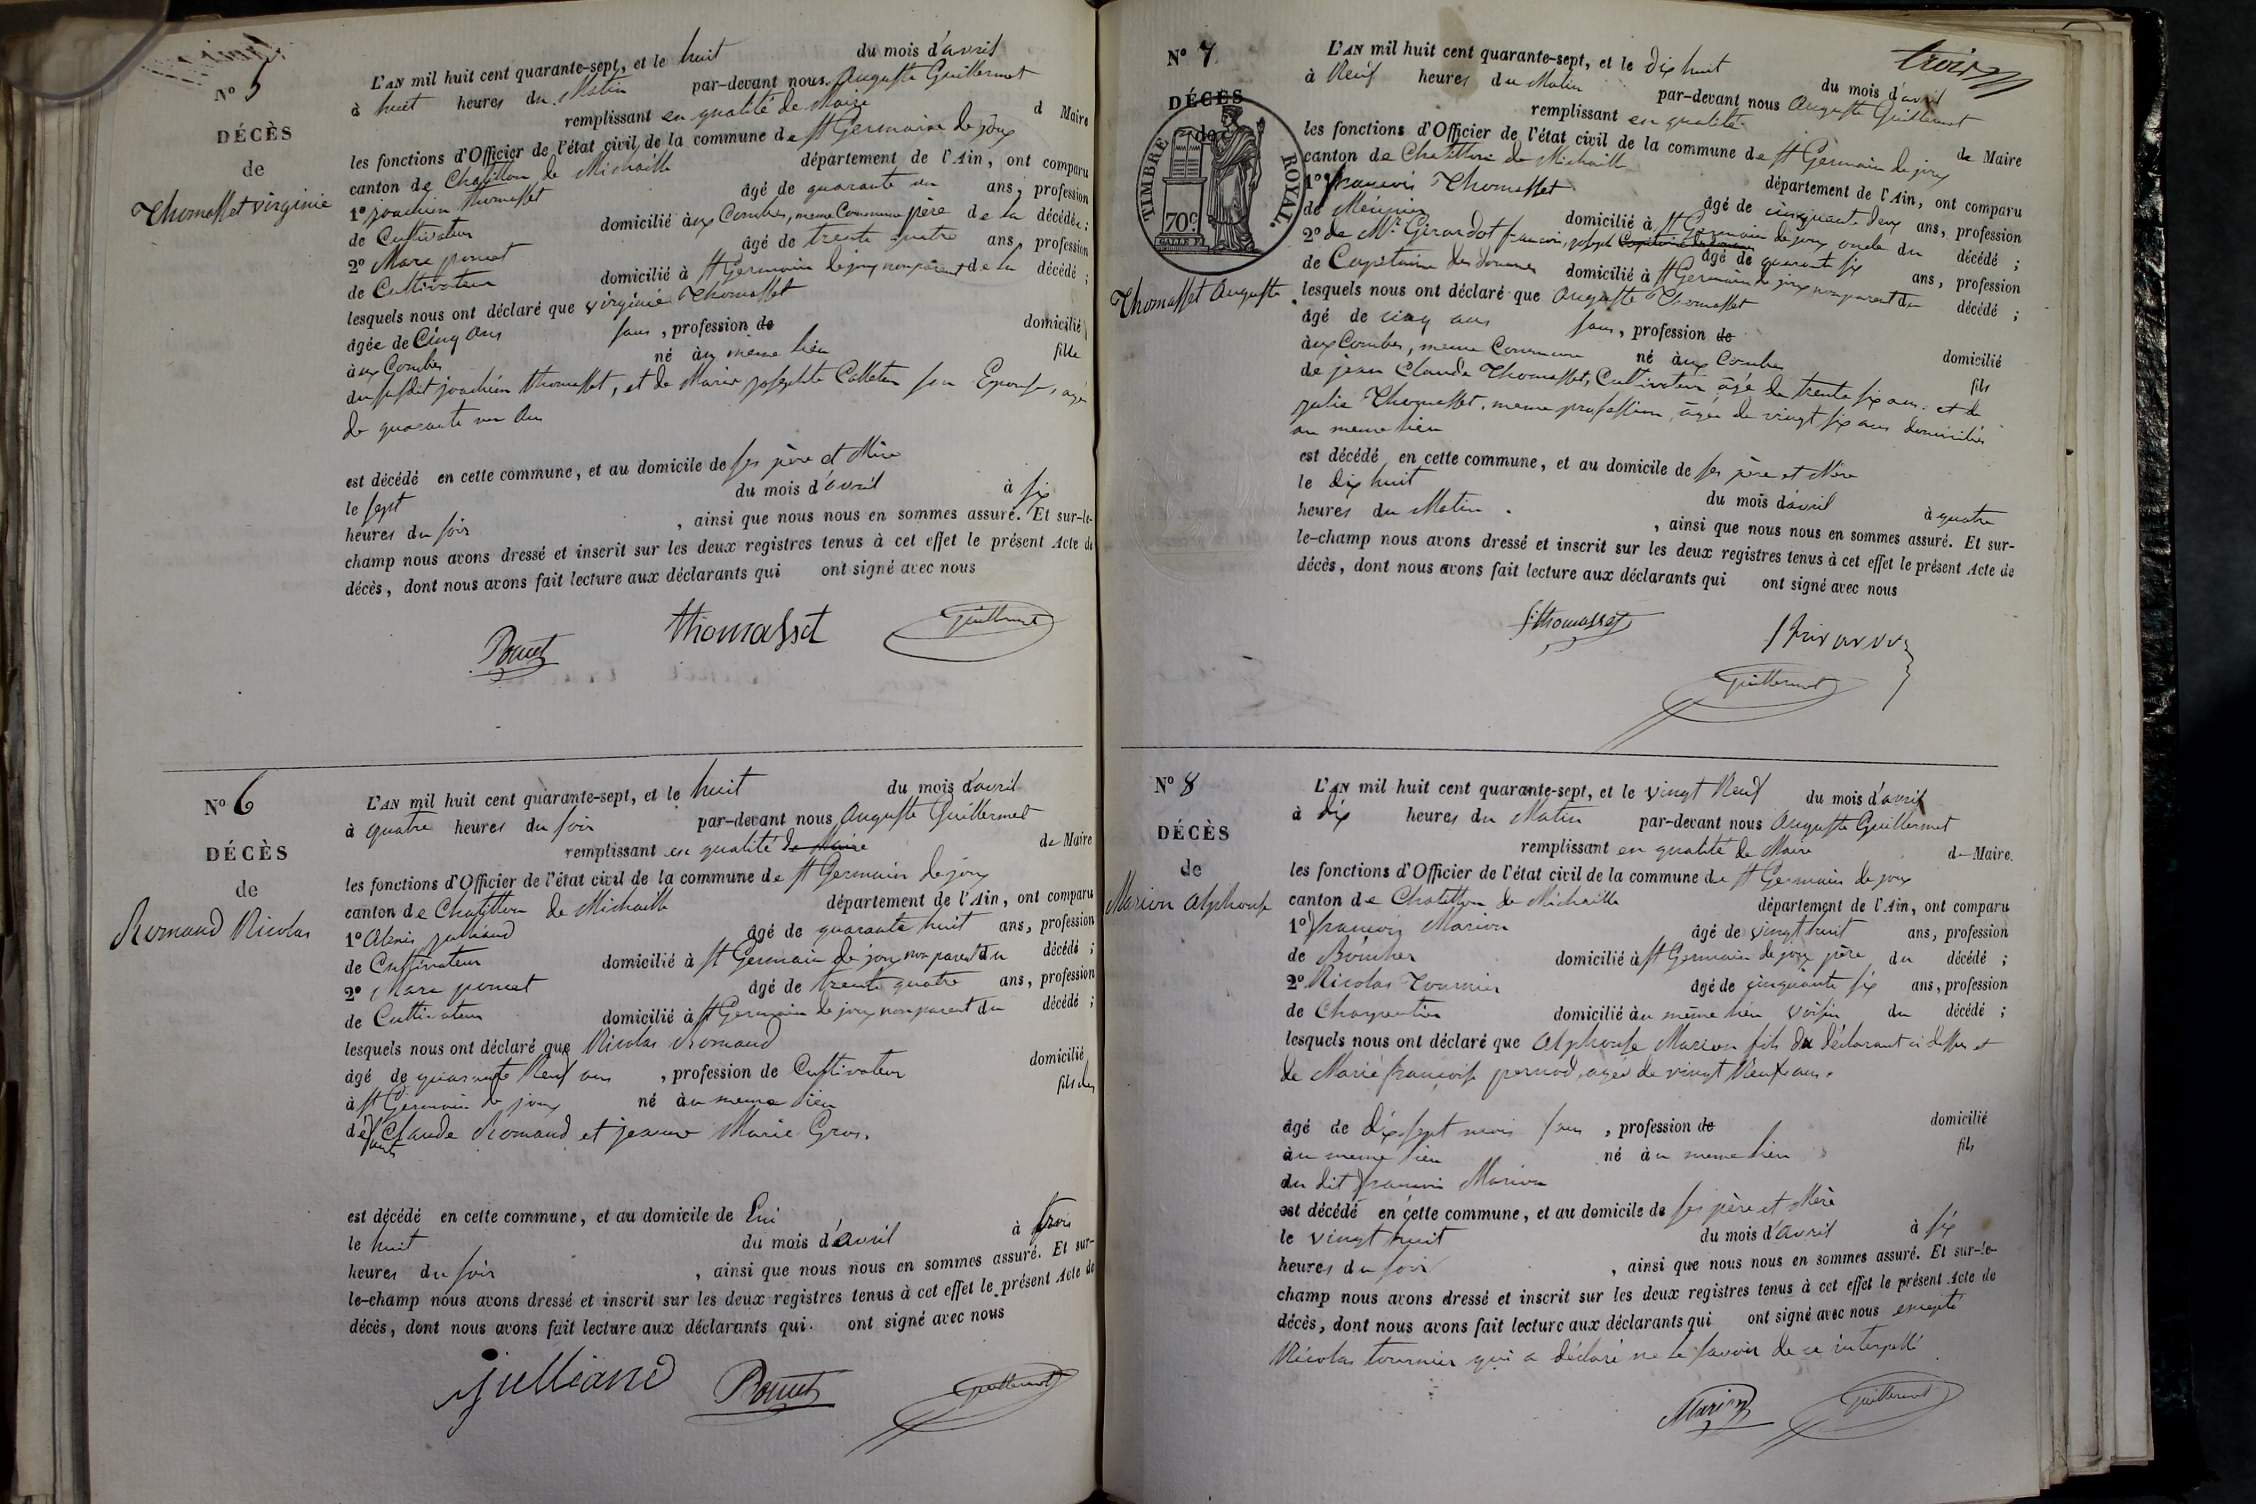 N° 5
DÉCÈS
de
Thomasset virginie
L'AN mil huit cent quarante-sept, et le huit du mois d'avril
à huit heures du Matin par-devant nous Auguste Guillermet
remplissant en qualité de Maire d Maire
les fonctions d'Officier de l'état civil de la commune de St Germain de joux
canton de Chatillon de Michaille département de l'Ain, ont comparu
1° joachim thomasset âgé de quarante un ans, profession
de Cultivateur domicilié aux Combes, meme Commune père de la décédée;
2° Marc poncet âgé de trente quatre ans, profession
de Cultivateur domicilié à St Germain de joux non parent de la décédé;
lesquels nous ont déclaré que virginie Thomasset
âgée de Cinq ans sans, profession de domicilié
aux Combes né au même lieu fille
du susdit joachim thomasset, et de Marie josephte Calleton son Epouse, agée
de quarante un ans
est décédé en cette commune, et au domicile de ses père et Mère
le sept du mois d'avril à six
heures du soir, ainsi que nous nous en sommes assuré. Et sur-le-
champ nous avons dressé et inscrit sur les deux registres tenus à cet effet le présent Acte de
décès, dont nous avons fait lecture aux déclarants qui ont signé avec nous
Poncet thomasset Guillermet
N° 6
DÉCÈS
de
Romand Nicolas
L'AN mil huit cent quarante-sept, et le huit du mois d'avril
à quatre heures du soir par-devant nous Auguste Guillermet
remplissant en qualité de Maire de Maire
les fonctions d'Officier de l'état civil de la commune de St Germain de joux
canton de Chatillon de Michaille département de l'Ain, ont comparu
1° Alexis julliand âgé de quarante huit ans, profession
de Cultivateur domicilié à St Germain de joux non parent du décédé;
2° Marc poncet âgé de trente quatre ans, profession
de Cultivateur domicilié à St Germain de joux non parent du décédé;
lesquels nous ont déclaré que Nicolas Romand
âgé de quarante Neuf ans, profession de Cultivateur domicilié
à St Germain de joux né au meme lieu fils des
défunts Claude Romand et jeanne Marie Gros.
est décédé en cette commune, et au domicile de Lui
le huit du mois d'avril à trois
heures du soir, ainsi que nous nous en sommes assuré. Et sur-
le-champ nous avons dressé et inscrit sur les deux registres tenus à cet effet le présent Acte de
décès, dont nous avons fait lecture aux déclarants qui ont signé avec nous
julliand Poncet Guillermet
trois
N° 7
DÉCÈS
de
TIMBRE ROYAL.
70c
Thomasset Auguste
L'AN mil huit cent quarante-sept, et le dix huit du mois d'avril
à Neuf heures du Matin par-devant nous Auguste Guillermet
remplissant en qualité de Maire
les fonctions d'Officier de l'état civil de la commune de St Germain de joux
canton de Chatillon de Michaille département de l'Ain, ont comparu
1° françois Thomasset âgé de cinquante deux ans, profession
de Meunier domicilié à St Germain de joux oncle du décédé;
2° de Mr Girardot francois, joseph Capitaine de douane âgé de quarante six ans, profession
de Capitaine des douanes domicilié à St Germain de joux non parent du décédé;
lesquels nous ont déclaré que Auguste Thomasset
âgé de cinq ans sans, profession de domicilié
aux Combes, meme Commune né aux Combes fils
de jean Claude Thomasset, Cultivateur âgé de trente six ans. et de
julie Thomasset, meme profession, âgée de vingt six ans domiciliés
au meme lieu
est décédé en cette commune, et au domicile de ses père et Mère
le dix huit du mois d'avril à quatre
heures du Matin, ainsi que nous nous en sommes assuré. Et sur-
le-champ nous avons dressé et inscrit sur les deux registres tenus à cet effet le présent Acte de
décès, dont nous avons fait lecture aux déclarants qui ont signé avec nous
f thomasset
Guillermet
N° 8
DÉCÈS
de
Marion Alphonse
L'AN mil huit cent quarante-sept, et le vingt Neuf du mois d'avril
à dix heures du Matin par-devant nous Auguste Guillermet
remplissant en qualité de Maire de Maire.
les fonctions d'Officier de l'état civil de la commune de St Germain de joux
canton de Chatillon de Michaille département de l'Ain, ont comparu
1° françois Marion âgé de vingt huit ans, profession
de Boucher domicilié à St Germain de joux père du décédé;
2° Nicolas Tournier âgé de cinquante six ans, profession
de Charpentier domicilié au même lieu voisin du décédé;
lesquels nous ont déclaré que Alphonse Marion fils du déclarant ci dessus et
de Marie françoise pernod, agée de vingt Neuf ans.
âgé de dix sept mois sans, profession de domicilié
au meme lieu né au meme lieu fils
du dit françois Marion
est décédé en cette commune, et au domicile de ses père et Mère
le vingt huit du mois d'avril à six
heures du soir, ainsi que nous nous en sommes assuré. Et sur-le-
champ nous avons dressé et inscrit sur les deux registres tenus à cet effet le présent Acte de
décès, dont nous avons fait lecture aux déclarants qui ont signé avec nous excepté
Nicolas tournier qui a déclaré ne le savoir de ce interpellé
Marion Guillermet